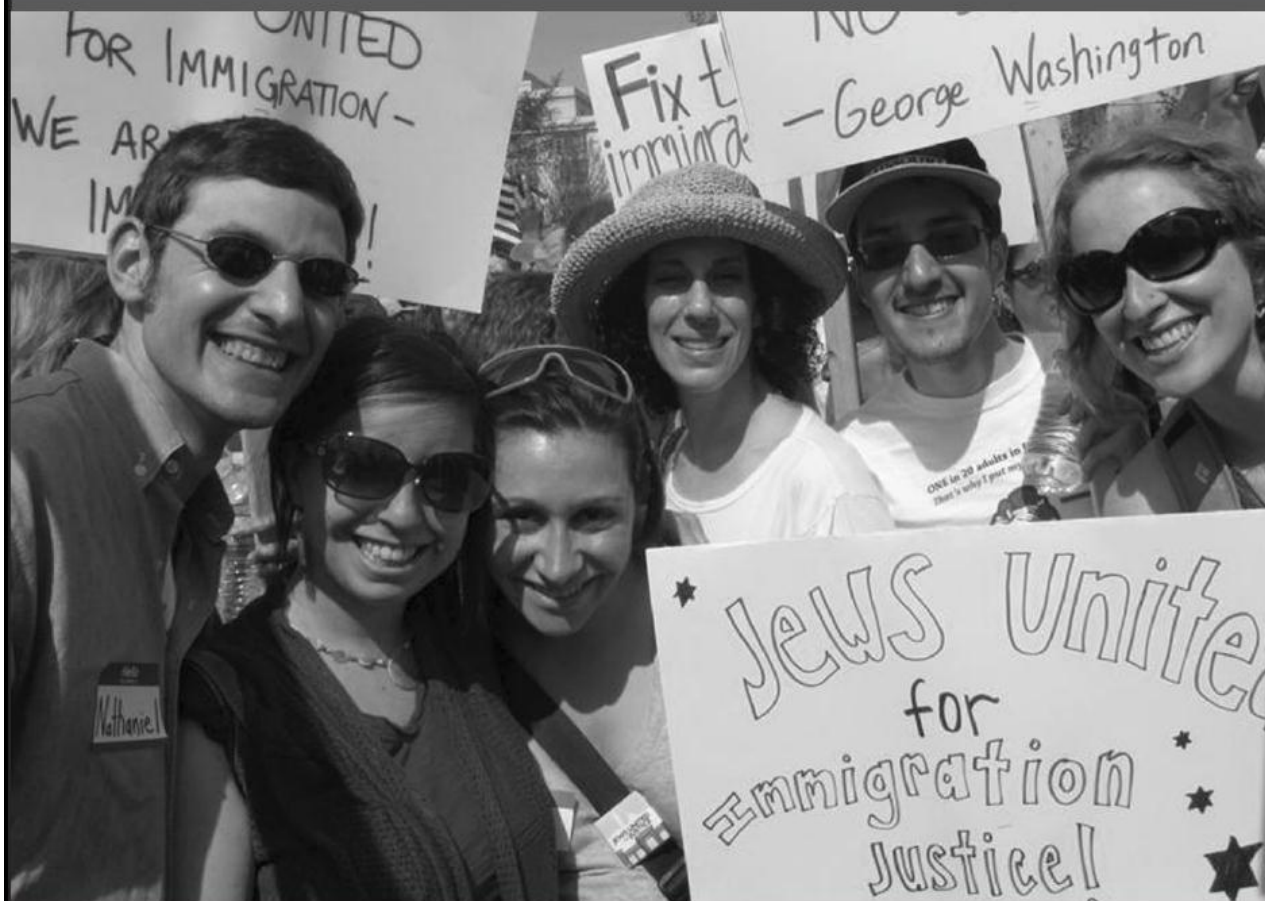 UNITED
FOR IMMIGRATION-
WE AR
IM !
Fix t
immigra
NO
-George Washington
ONE in 20 adults in
That's why I put my
Nathaniel
Jews United
for
Immigration
Justice!